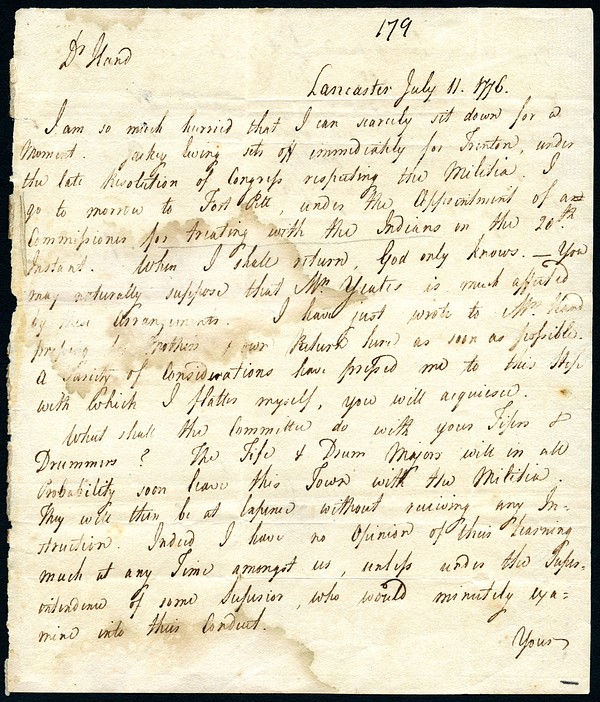 179
Dr Hand
Lancaster July 11. 1776.
I am so much hurried that I can scarcely sit down for a
Moment. Jaskey Ewing sets off immediately for Trenton, under
the late Resolution of Congress respecting the Militia. I
go to morrow to Fort Pitt, under the Appointment of an
Commissioner for treating with the Indians on the 20th
Instant. When I shall return, God only knows. — You
may naturally suppose that Mrs Yeates is much affected
by these Arrangements. I have just wrote to Mrs Hand
pressing Mothers & own Return here as soon as possible.
A Variety of Considerations have pressed me to this Step
with which I flatter myself, you will acquiesce.
What shall the Committee do with your Fifers &
Drummers? The Fife & Drum Majors will in all
Probability soon leave this Town with the Militia.
They will then be at Expence without receiving any In-
struction. Indeed I have no Opinion of their Learning
much at any Time amongst us, unless under the Super-
intendence of some Superior, who would minutely exa-
mine into their Conduct.
Yours